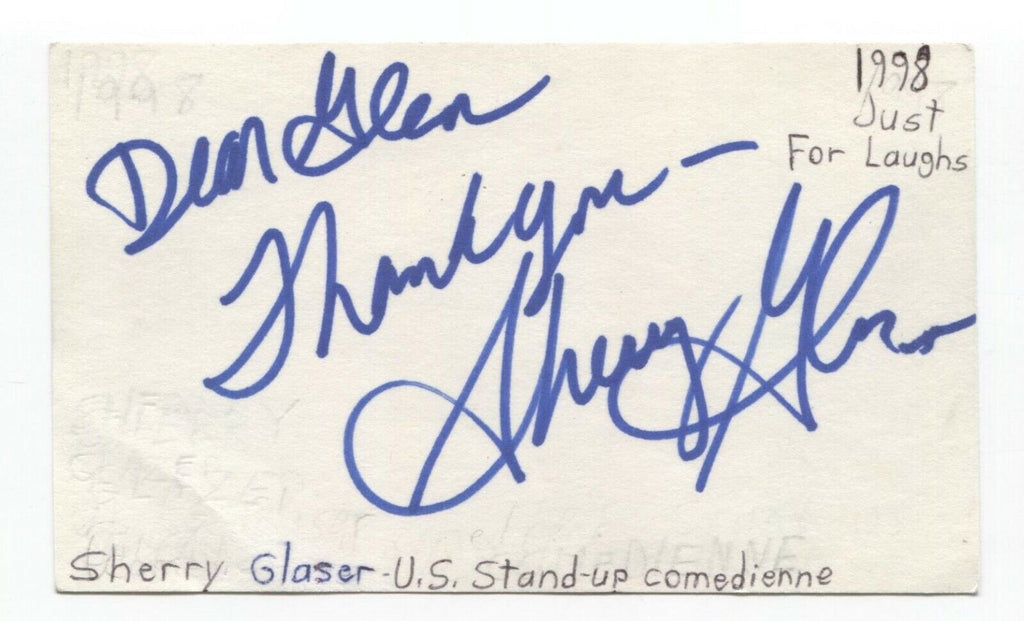 1998
Just
For Laughs
Dear Glen
Thank you –
Sherry Glaser
Sherry Glaser - U.S. Stand-up comedienne